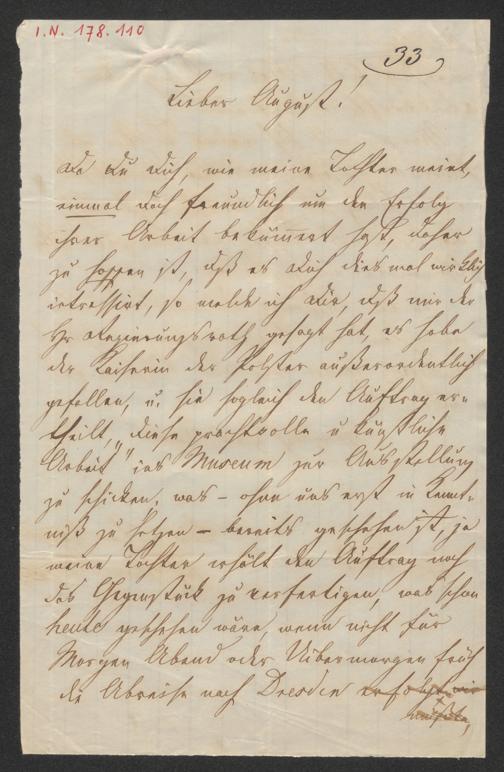 I.N. 178.110
33
Lieber August!
Da Du Dich, wie meine Tochter meint,
einmal doch freundlich um den Erfolg
ihrer Arbeit bekümmert hast, daher
zu hoffen ist, daß es Dich dies mal wirklich
intressirt, so melde ich Dir, daß mir der
Hr Regierungsrath gesagt hat, es habe
der Kaiserin der Polster außerordentlich
gefallen, u. sie sogleich den Auftrag er=
theilt, „diese prachtvolle u künstliche
Arbeit" ins Museum zur Ausstellung
zu schicken, was – ohne uns erst in Kennt=
niß zu setzen – bereits geschehen ist, ja
meine Tochter erhält den Auftrag noch
das Gegenstück zu verfertigen, was schon
heute geschehen wäre, wenn nicht für
Morgen Abend oder Uibermorgen früh
die Abreise nach Dresden erfolgt wir